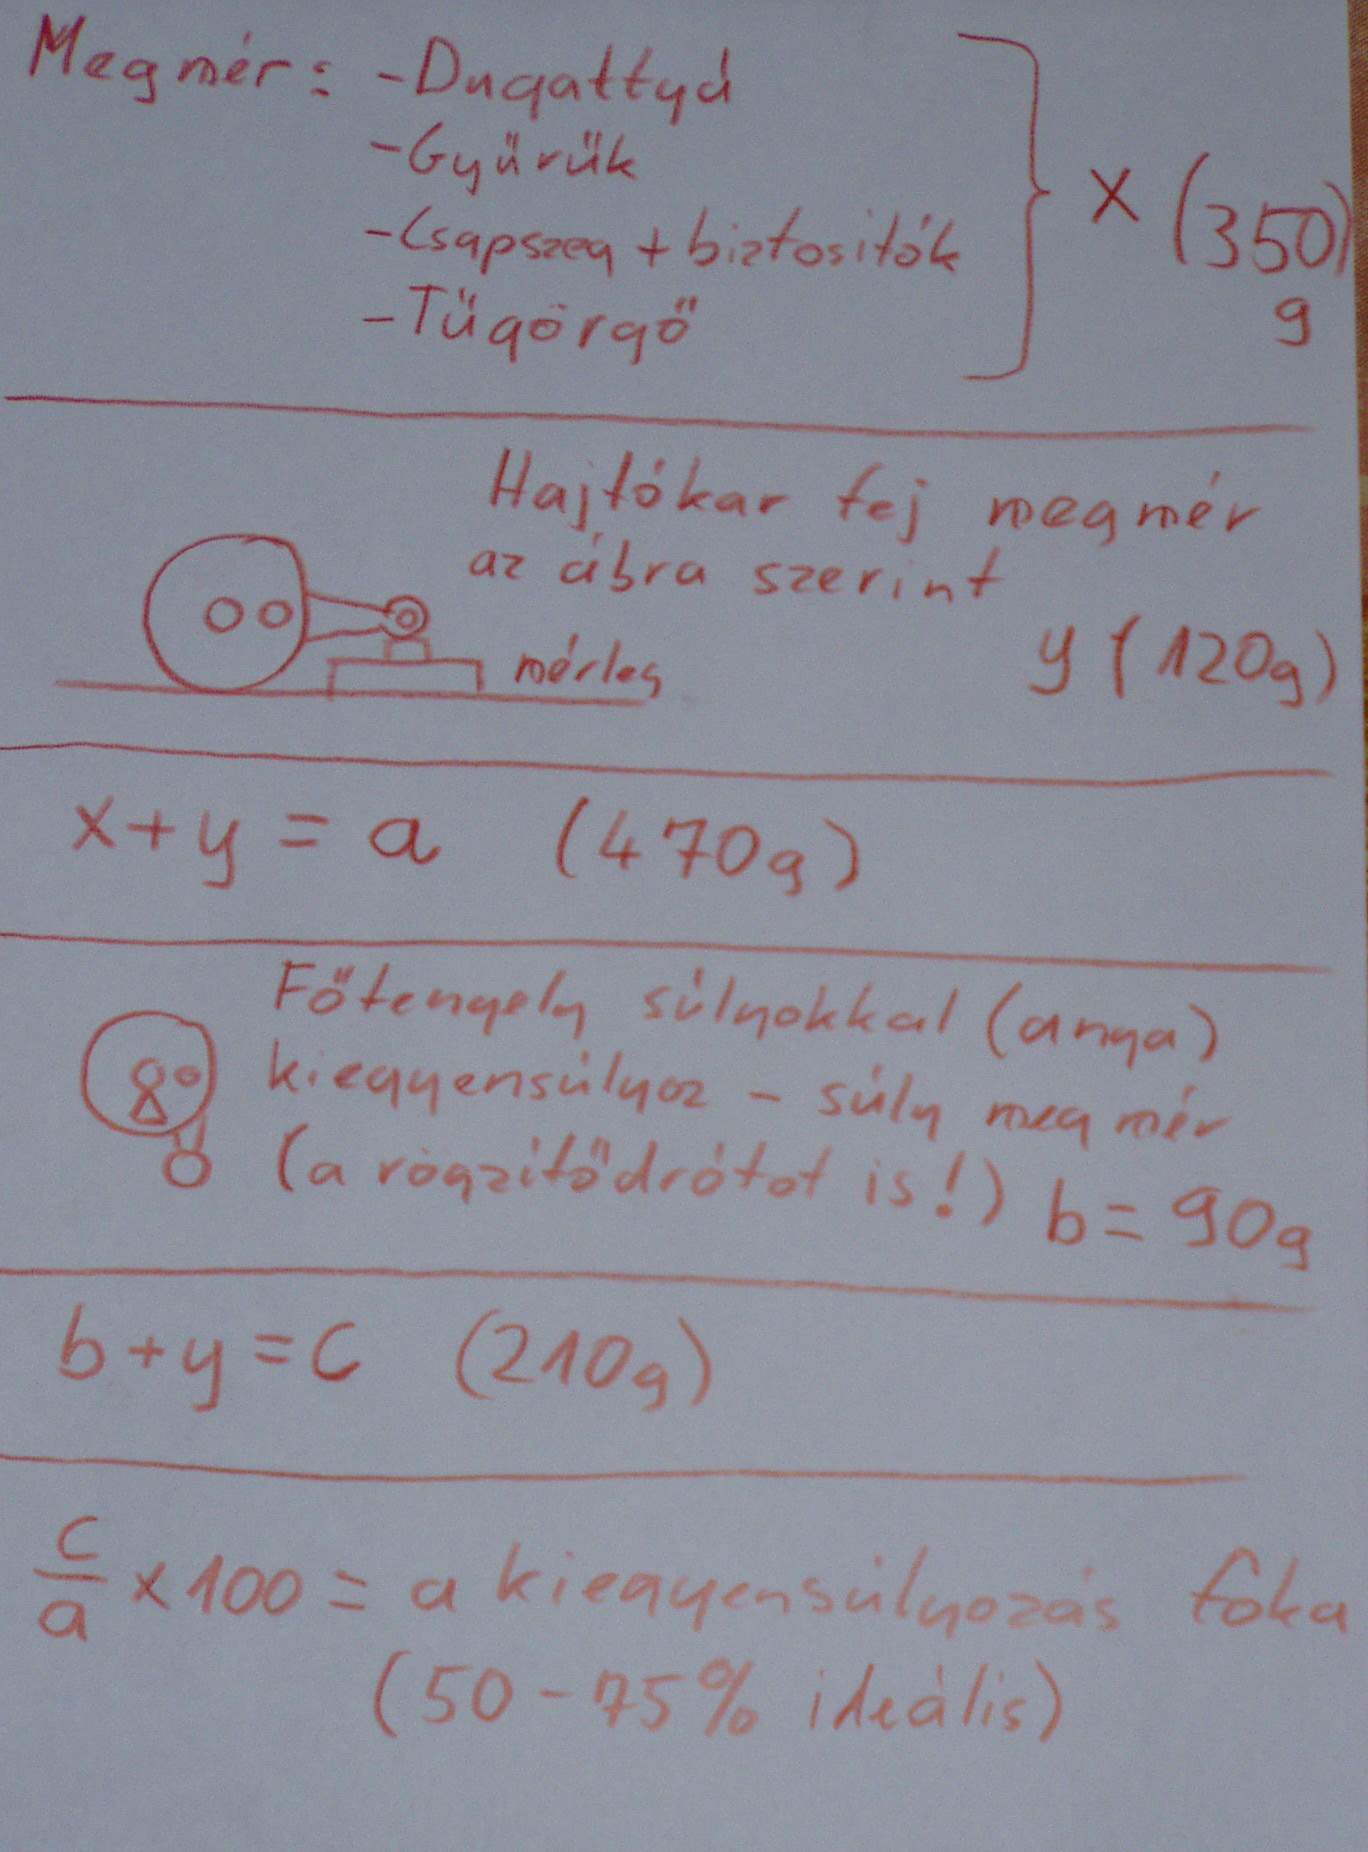 Megmér: - Dugattyú
- Gyűrűk
- Csapszeg + biztositók
- Tűgörgő
x (350)
g
Hajtókar fej megmér
az ábra szerint
mérleg
y (120g)
x + y = a (470g)
Főtengely súlyokkal (anya)
kiegyensúlyoz - súly megmér
(a rögzitődrótot is!) b = 90g
b + y = c (210g)
c/a x 100 = a kiegyensúlyozás foka
(50 - 75% ideális)